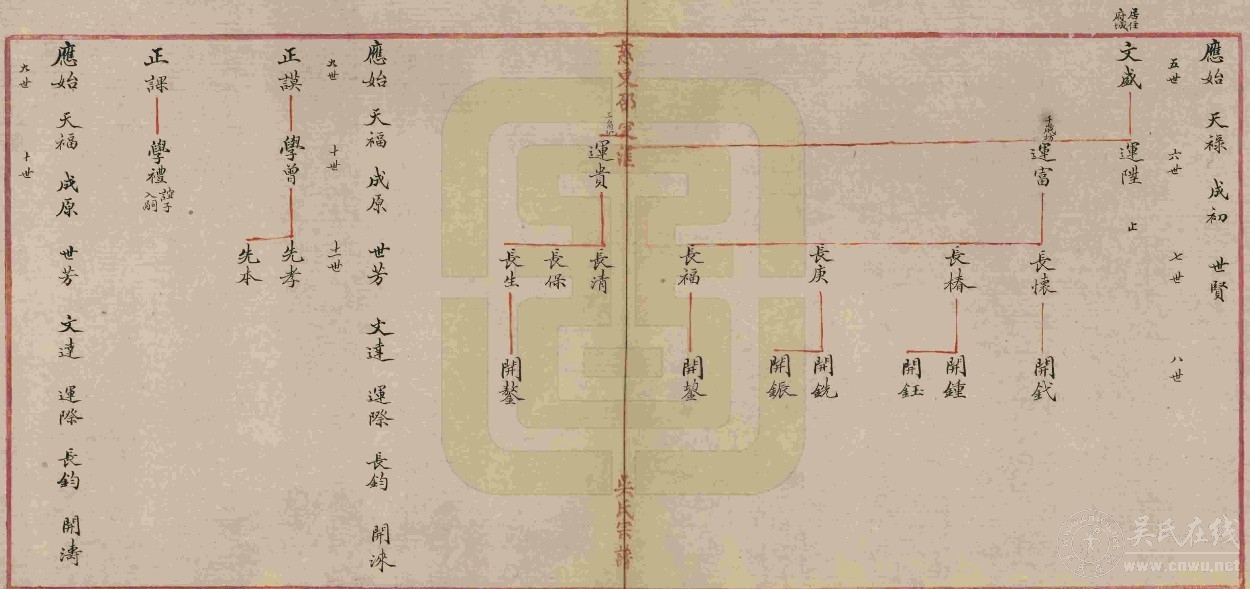 應始 天祿 成初 世賢
五世 六世 七世 八世
居住
府城
文盛
運陞 止
運富
長懷
開鉞
長椿
開鍾
開鈺
長庚
開銑
開鋠
長福
開鏊
吳氏宗譜
運貴
長清
長保
長生
開鏊
應始 天福 成原 世芳 文達 運際 長鈞 開淶
九世 十世 十一世
正謨
學曾
先孝
先本
正課
學禮
誼子
入嗣
應始 天福 成原 世芳 文達 運際 長鈞 開濤
九世 十世
吳氏在线
www.cnwu.net